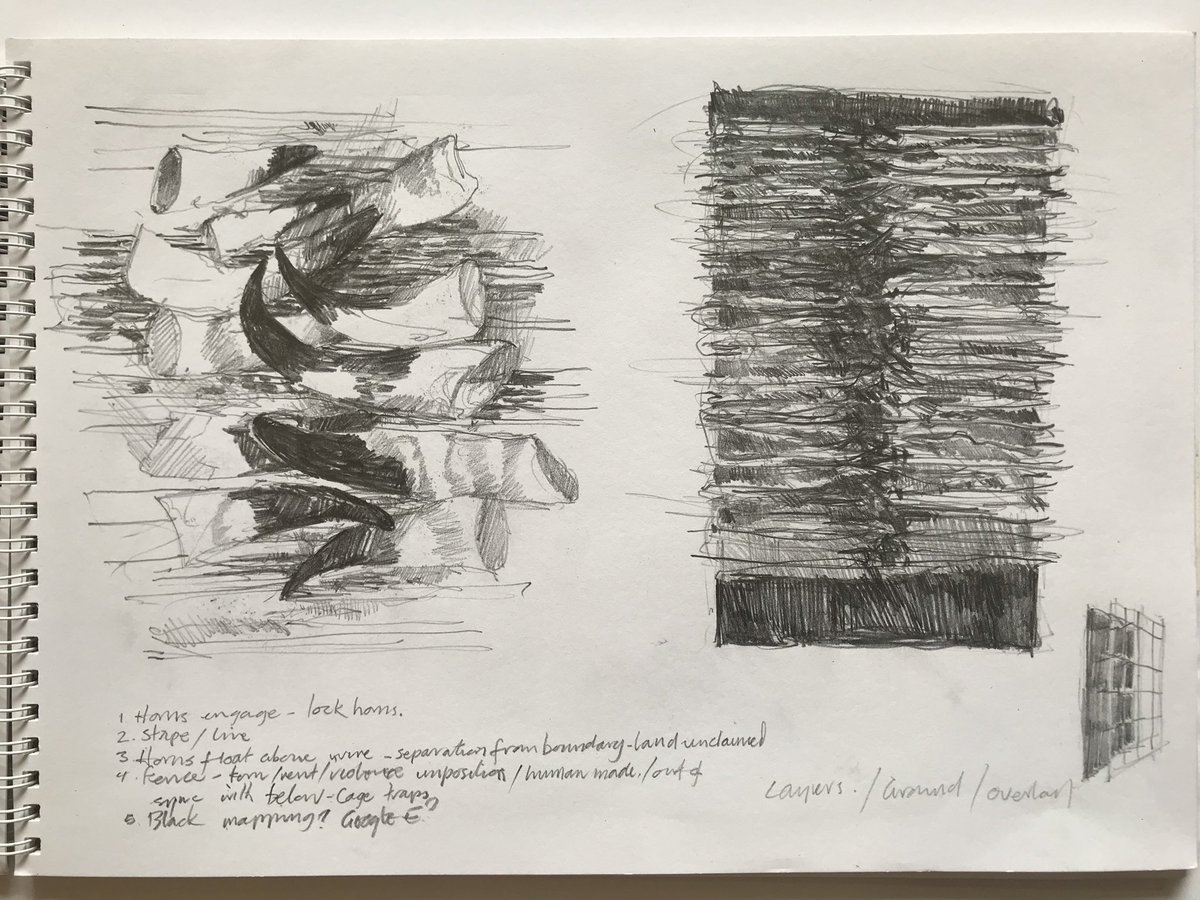 1 Horns engage - lock horns.
2. Stripe / line
3 Horns float above wire - separation from boundary - land unclaimed
4 Fence - torn / rent / violence imposition / human made. / out of
sync with below - cage traps
5 Black mapping? Google E?
Layers. / Ground / overlap